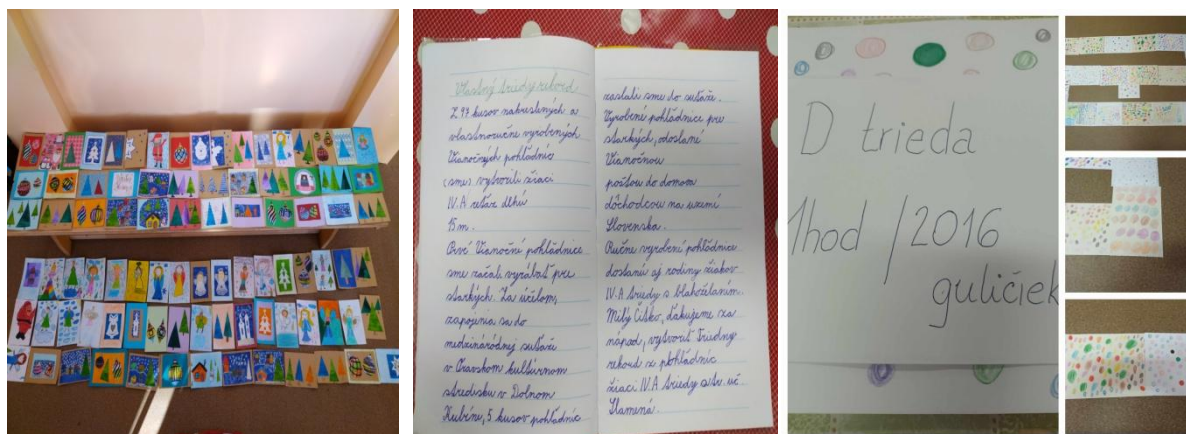 Vlastný triedy rekord
Z 93 kusov nakreslených a
vlastnoručne vyrobených
Vianočných pohľadníc
(sme) vytvorili žiaci
IV.A reťaz dlhú
15 m.
Prvé Vianočné pohľadnice
sme začali vyrábať pre
starkých. Za účelom,
zapojenia sa do
medzinárodnej súťaže
v Oravskom kultúrnom
stredisku v Dolnom
Kubíne, 5 kusov pohľadníc
zaslali sme do súťaže.
Vyrobené pohľadnice pre
starkých, odoslané
Vianočnou
poštou do domov
dôchodcov na území
Slovenska.
Ručne vyrobení pohľadnice
dostanú aj rodiny žiakov
IV.A triedy s blahoželaním.
Milý Cífko, ďakujeme za
nápad, vytvoriť Triedny
rekord z pohľadníc
žiaci IV.A triedy a tr. uč.
Slamená.
D trieda
1hod / 2016
guličiek